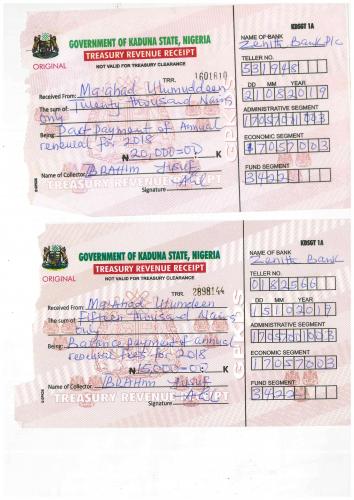 KDSGT 1A
GOVERNMENT OF KADUNA STATE, NIGERIA
TREASURY REVENUE RECEIPT
NOT VALID FOR TREASURY CLEARANCE
ORIGINAL
TRR. 1601810
Received From: Ma'ahad Ulumuddeen
The sum of: Twenty thousand Naira
only
Being: Part payment of Annual
renewal for 2018
₦ 20,000=00 K
Name of Collector IBRAHIM Yusuf
Signature
TREASURY REVENUE RECEIPT
NAME OF BANK
Zenith Bank Plc
TELLER NO.
531948
DD MM YEAR
21 08 2019
ADMINISTRATIVE SEGMENT
ECONOMIC SEGMENT
17057003
FUND SEGMENT
3422
KDSGT 1A
GOVERNMENT OF KADUNA STATE, NIGERIA
TREASURY REVENUE RECEIPT
NOT VALID FOR TREASURY CLEARANCE
ORIGINAL
TRR. 2898144
Received From: Ma'ahad Ulumdeen
The sum of: Fifteen thousand Naira
only
Being: Balance payment of annual
renewal fees for 2018
₦ 15,000=00 K
Name of Collector IBRAHIM Yusuf
Signature
TREASURY REVENUE RECEIPT
NAME OF BANK
Zenith Bank
TELLER NO.
0182566
DD MM YEAR
15 10 2019
ADMINISTRATIVE SEGMENT
ECONOMIC SEGMENT
17057003
FUND SEGMENT
3422